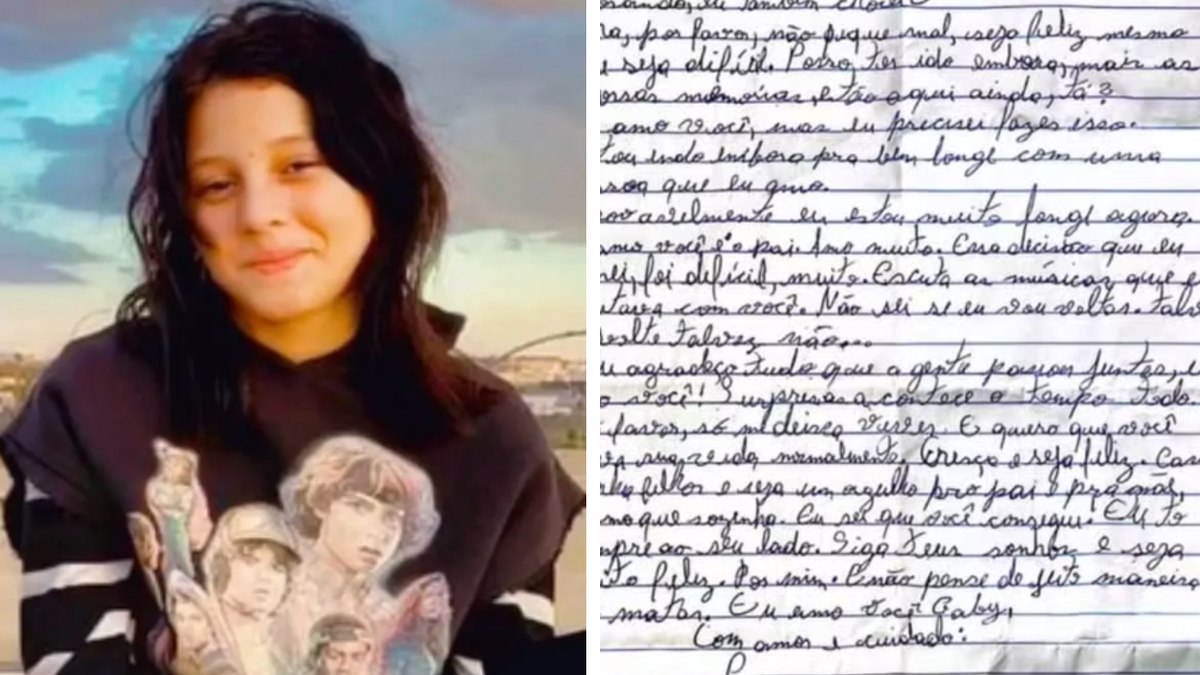 também
por favor, não fique mal, seja feliz mesmo
e seja difícil. Posso, ter ido embora, mais as
ossas memórias, estão aqui ainda, tá?
amo você, mas eu precisei fazer isso.
tou indo embora pra bem longe com uma
soa que eu amo.
rovavelmente eu estou muito longe agora,
amo você e o pai. Amo muito. Essa decisão que eu
ei, foi difícil, muito. Escuta as músicas que e
tava com você. Não sei se eu vou voltar. talv
volte talvez não...
u agradeço tudo que a gente passou juntas, e
o você! Surpresas acontece o tempo todo.
favor, só me deixa viver. E quero que você
va sua vida normalmente. Cresça e seja feliz. Cas
filhos e seja um pro pai e pra mãe,
mo que sozinha. Eu sei que você consegue. Eu to
mpre ao seu lado. Siga teus sonhos e seja
ito feliz. Por mim. E não pense de jeito maneira
matar. Eu amo você Gaby,
Com amor e cuidado: